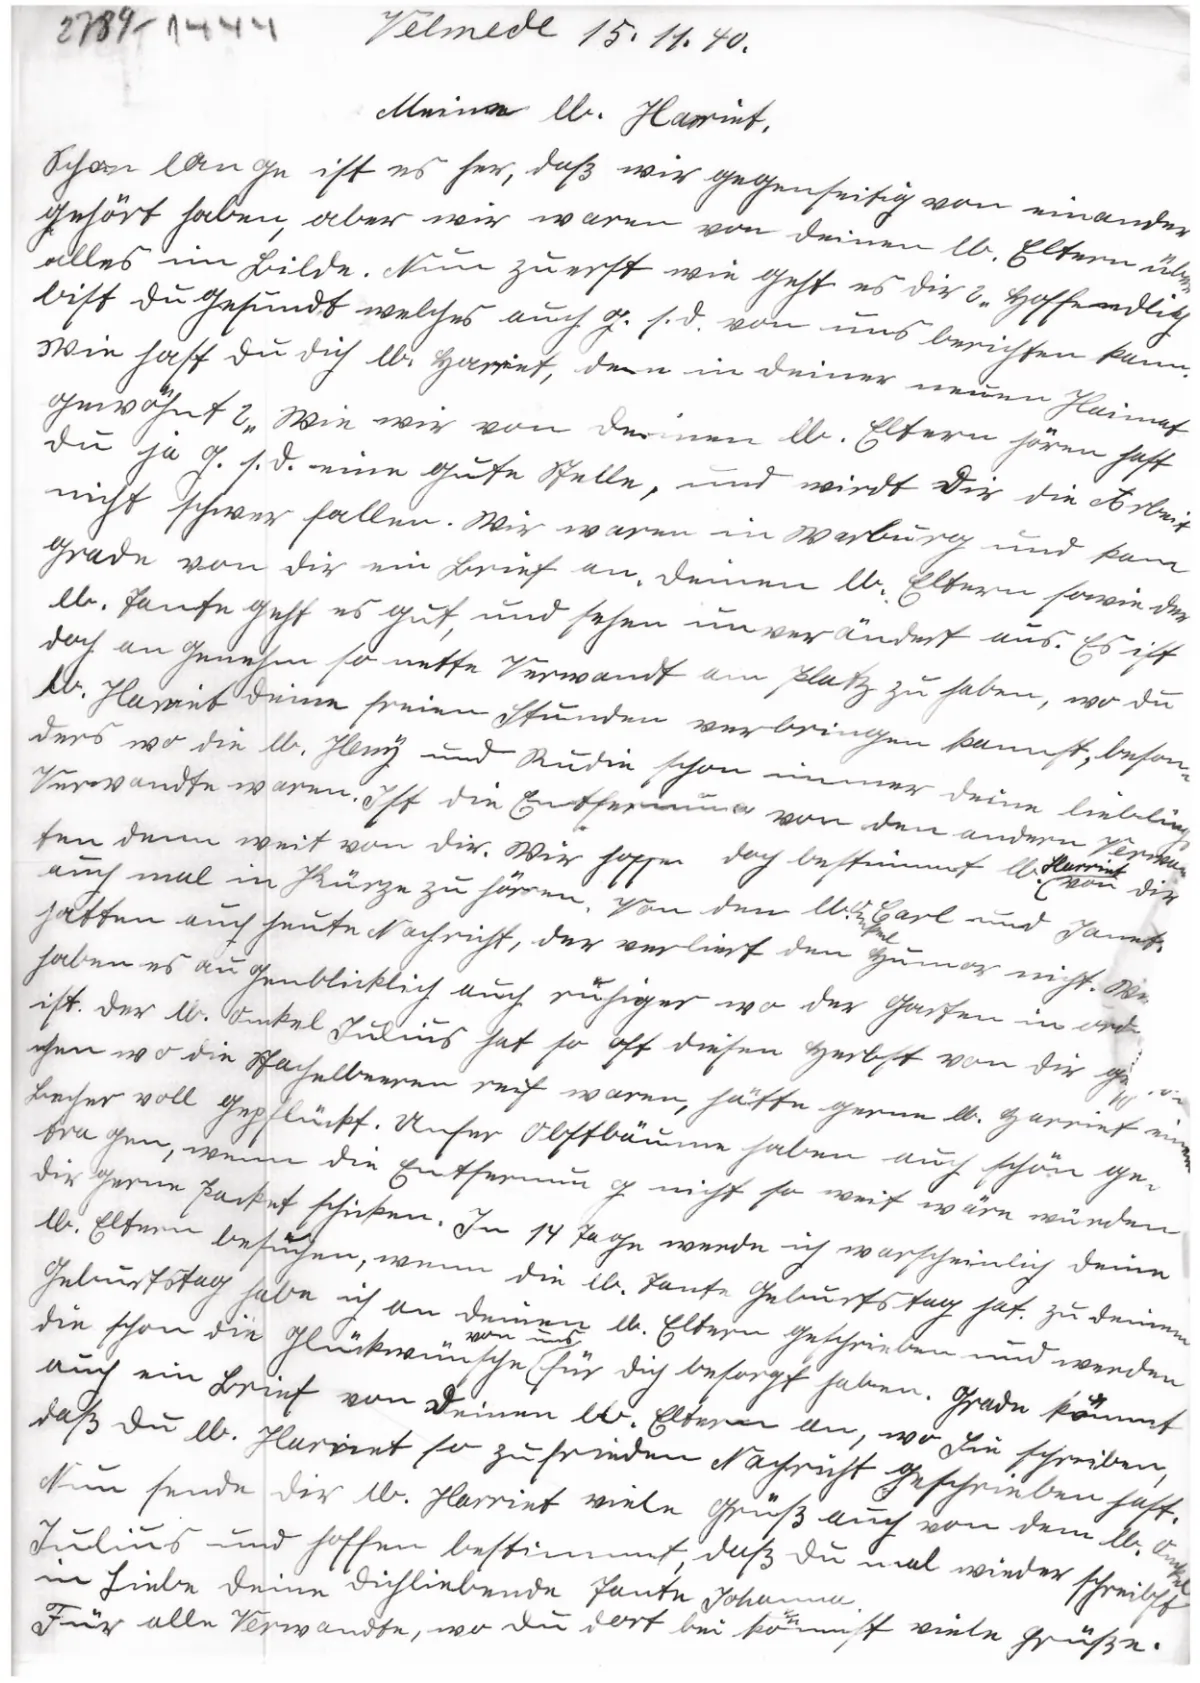 2789-1444
Velmede 15.11.40.
Meine lb. Harriet.
Schon lange ist es her, daß wir gegenseitig von einander
gehört haben, aber wir waren von deinen lb. Eltern über
alles im Bilde. Nun zuerst wie geht es dir? Hoffendlich
bist du Gesundt welches auch g. s. d. von uns berichten kann.
Wie hast du dich lb. Harriet, denn in deiner neuen Heimat
gewöhnt? Wie wir von deinen lb. Eltern hören hast
du ja g. s. d. eine gute Stelle, und wirdt Dir die Arbeit
nicht schwer fallen. Wir waren in Warburg und kam
grade von dir ein Brief an. Deinen lb. Eltern sowie der
lb. Tante geht es gut, und sehen unverändert aus. Es ist
doch angenehm so nette Verwandt am Platz zu haben, wo du
lb. Harriet deine freien Stunden verbringen kannst, beson-
ders wo die lb. und Rudie schon immer deine lieblings
Verwandte waren. Ist die Entfernung von den andern Verwan
ten denn weit von dir. Wir hoffen doch bestimmt lb. Harriet von dir
auch mal in Kürze zu hören. Von den lb. Onkel Carl und Janet.
hatten auch heute Nachricht, der verliert den Humor nicht. Wir
haben es augenblicklich auch ruhiger wo der Garten in ord
ist. Der lb. Onkel Julius hat so oft diesen Herbst von dir
chen wo die Stachelbeeren reif waren, hätte gerne lb. Harriet einen
Becher voll gepflückt. Unser Obstbäume haben auch schön ge-
tragen, wenn die Entfernung nicht so weit wäre würden
dir gerne Packet schicken. In 14 Tage werde ich warscheinlich deine
lb. Eltern besuchen, wenn die lb. Tante Geburtstag hat. Zu deinem
Geburtstag habe ich an deinen lb. Eltern geschrieben und werden
die schon die Glückwünsche von uns für dich besorgt haben. Grade kömmt
auch ein Brief von Deinen lb. Eltern an, wo Sie schreiben,
daß du lb. Harriet so zufrieden Nachricht geschrieben hast.
Nun sende dir lb. Harriet viele Grüß auch von dem lb. Onkel
Julius und hoffen bestimmt, daß du mal wieder schreibst
in Liebe deine dichliebende Tante Johanna.
Für alle Verwandte, wo du dort bei kömmst viele Grüße.